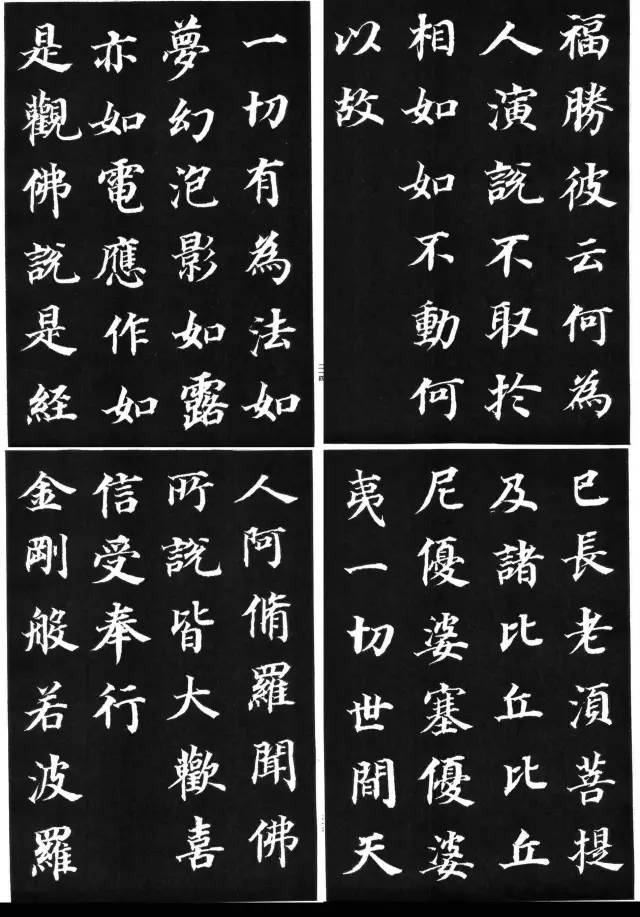 福勝彼云何為
人演説不取於
相如如不動何
以故
一切有為法如
夢幻泡影如露
亦如電應作如
是觀佛説是経
已長老湏菩提
及諸比丘比丘
尼優婆塞優婆
夷一切世間天
人阿脩羅聞佛
所説皆大歡喜
信受奉行
金剛般若波羅